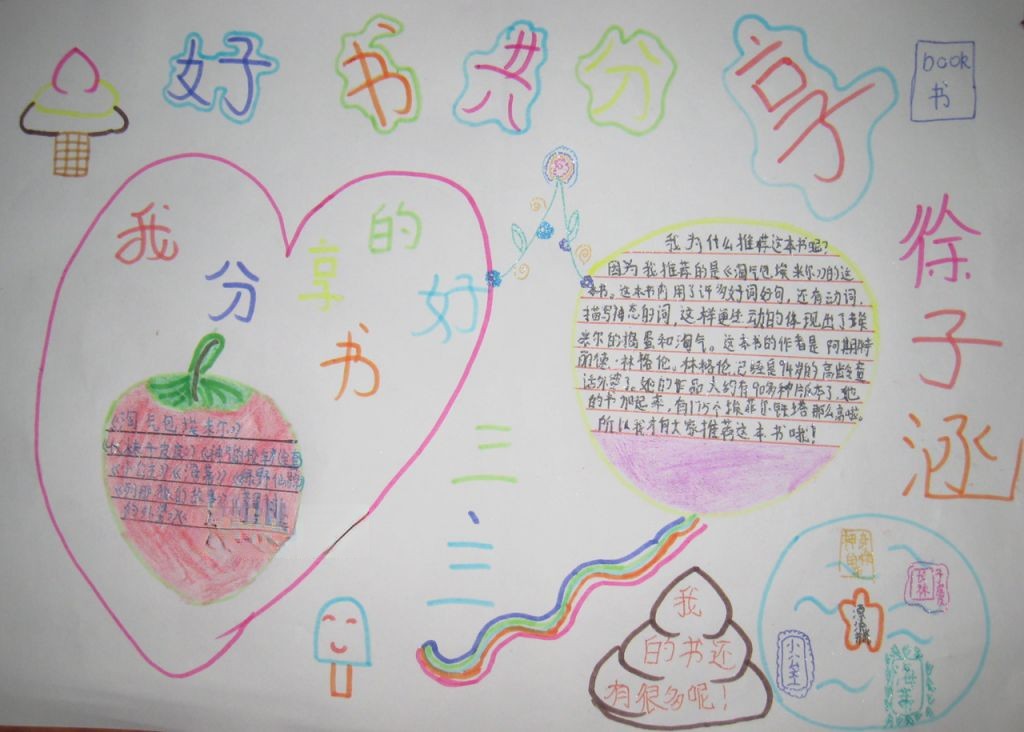 好书共分享
book
书
徐子涵
我分享的好书
《淘气包埃米尔》
《小公主》《海蒂》《绿野仙踪》
三、二
我为什么推荐这本书呢?
因为我推荐的是《淘气包埃米尔》的这
本书。这本书内用了许多好词好句,还有动词,
描写神态的词,这样更生动的体现出了埃
米尔的捣蛋和淘气。这本书的作者是阿斯特
丽德·林格伦。林格伦已经是94岁的高龄
了。她的作品大约有90多种版本了,她
的书加起来,有175个埃菲尔铁塔那么高啦。
所以我才有大家推荐这本书哦!
我
的书还
有很多呢!
长袜子
小公主
海蒂